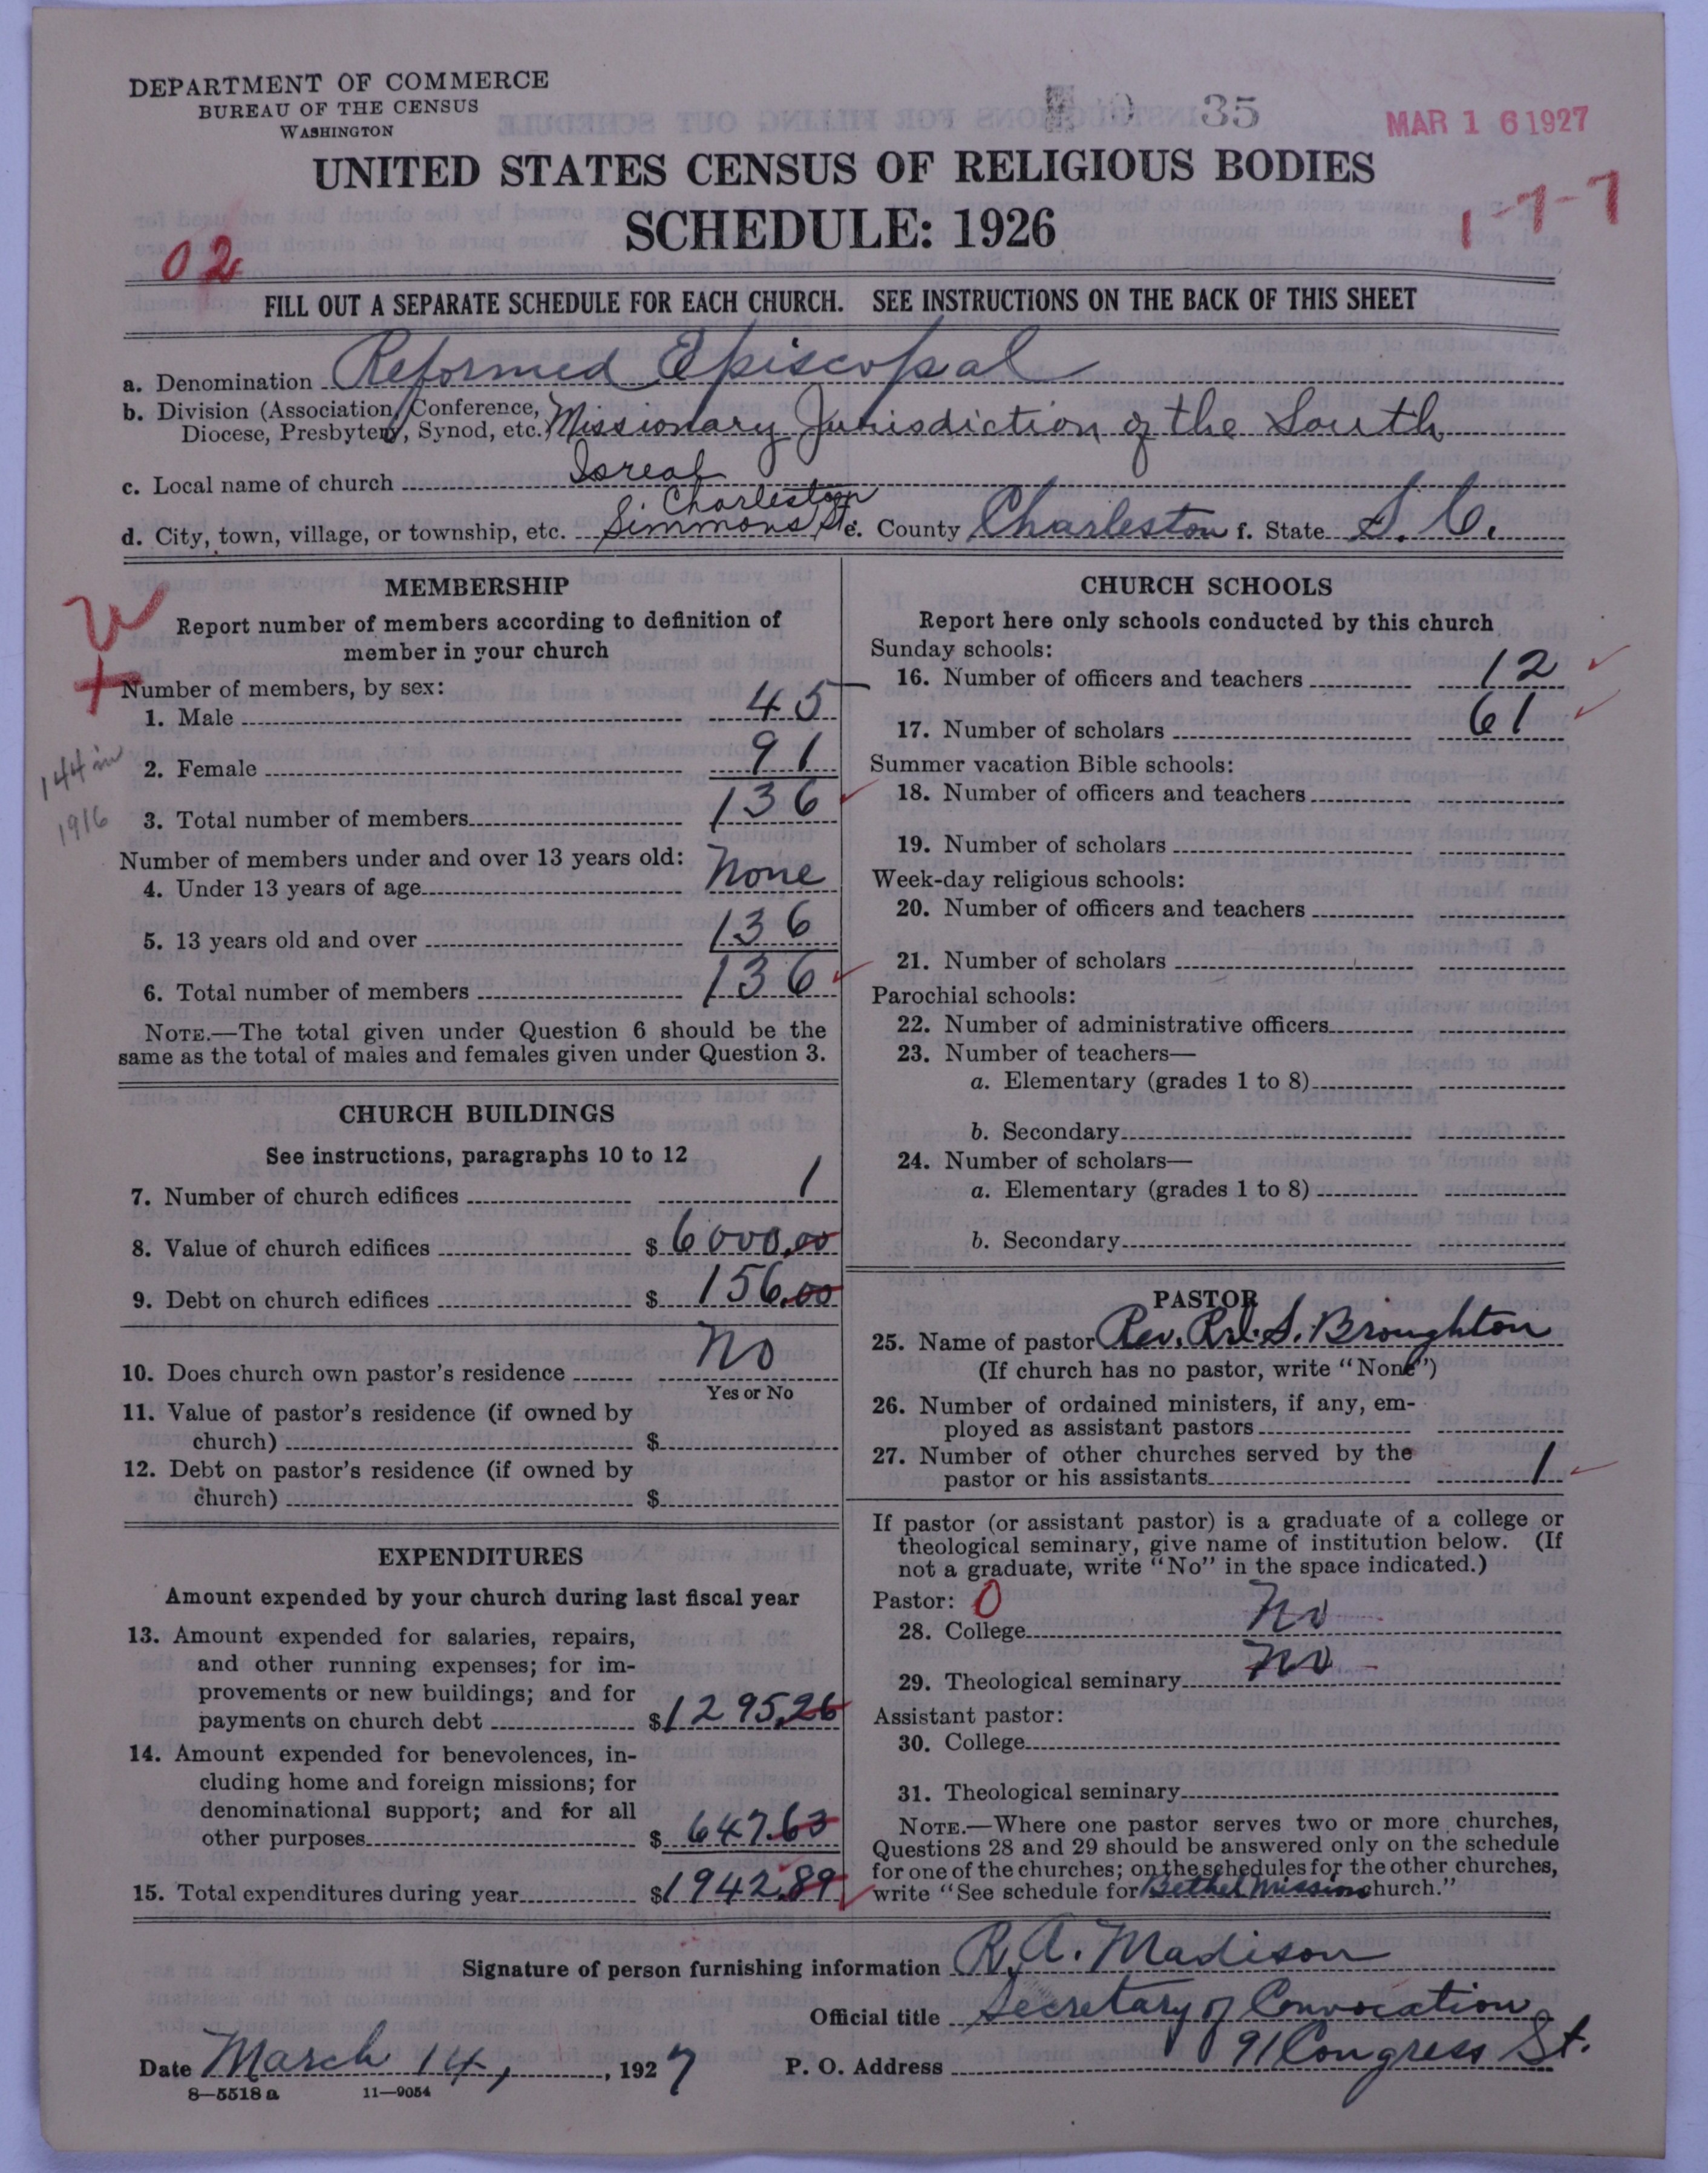 DEPARTMENT OF COMMERCE
BUREAU OF THE CENSUS
WASHINGTON
35
MAR 16 1927
UNITED STATES CENSUS OF RELIGIOUS BODIES
SCHEDULE: 1926
1-7-7
02
FILL OUT A SEPARATE SCHEDULE FOR EACH CHURCH. SEE INSTRUCTIONS ON THE BACK OF THIS SHEET
a. Denomination Reformed Episcopal
b. Division (Association, Conference, Diocese, Presbytery, Synod, etc.) Missionary Jurisdiction of the South
c. Local name of church Isreal
d. City, town, village, or township, etc. Simmons St Charleston e. County Charleston f. State S. C.
MEMBERSHIP
Report number of members according to definition of
member in your church
Number of members, by sex:
1. Male 45
2. Female 91
144 in
1916
3. Total number of members 136
Number of members under and over 13 years old:
4. Under 13 years of age None
5. 13 years old and over 136
6. Total number of members 136
NOTE.—The total given under Question 6 should be the
same as the total of males and females given under Question 3.
CHURCH BUILDINGS
See instructions, paragraphs 10 to 12
7. Number of church edifices 1
8. Value of church edifices $ 6000.00
9. Debt on church edifices $ 156.00
10. Does church own pastor's residence No
Yes or No
11. Value of pastor's residence (if owned by
church) $
12. Debt on pastor's residence (if owned by
church) $
EXPENDITURES
Amount expended by your church during last fiscal year
13. Amount expended for salaries, repairs,
and other running expenses; for im-
provements or new buildings; and for
payments on church debt $1295.26
14. Amount expended for benevolences, in-
cluding home and foreign missions; for
denominational support; and for all
other purposes $ 647.63
15. Total expenditures during year $1942.89
CHURCH SCHOOLS
Report here only schools conducted by this church
Sunday schools:
16. Number of officers and teachers 12
17. Number of scholars 61
Summer vacation Bible schools:
18. Number of officers and teachers
19. Number of scholars
Week-day religious schools:
20. Number of officers and teachers
21. Number of scholars
Parochial schools:
22. Number of administrative officers
23. Number of teachers—
a. Elementary (grades 1 to 8)
b. Secondary
24. Number of scholars—
a. Elementary (grades 1 to 8)
b. Secondary
PASTOR
25. Name of pastor Rev. S. Broughton
(If church has no pastor, write "None")
26. Number of ordained ministers, if any, em-
ployed as assistant pastors
27. Number of other churches served by the
pastor or his assistants 1
If pastor (or assistant pastor) is a graduate of a college or
theological seminary, give name of institution below. (If
not a graduate, write "No" in the space indicated.)
Pastor: 0
28. College No
29. Theological seminary No
Assistant pastor:
30. College
31. Theological seminary
NOTE.—Where one pastor serves two or more churches,
Questions 28 and 29 should be answered only on the schedule
for one of the churches; on the schedules for the other churches,
write "See schedule for Bethel Mission church."
Signature of person furnishing information R. A. Madison
Official title Secretary of Convocation
Date March 14, 1927 P. O. Address 91 Congress St.
8—5518 a 11—9054